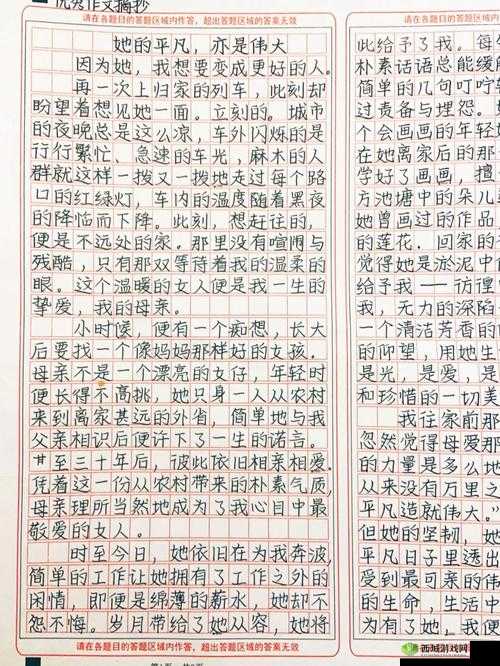 优秀作文摘抄
请在各题目的答题区域内作答，超出答题区域的答案无效
她的平凡，亦是伟大
因为她，我想要变成更好的人。
再一次上归家的列车，此刻却
盼望着想见她一面。立刻的。城市
的夜晚总是这么凉，车外闪烁的是
行行繁忙、急速的车光，麻木的人
群就这样一拨又一拨地走过每个路
口的红绿灯，车内的温度随着黑夜
的降临而下降。此刻，想赶往的，
便是不远处的家。那里没有喧闹与
残酷，只有那双等待着我的温柔的
眼。这个温暖的女人便是我一生的
挚爱，我的母亲。
小时候，便有一个痴想，长大
后要找一个像妈妈那样好的女孩。
母亲不是一个漂亮的女仔，年轻时
便长得不高挑，她只身一人从农村
来到离家甚远的外省，简单地与我
父亲相识后便许下了一生的诺言。
甘至三十年后，彼此依旧相亲相爱。
凭着这一份从农村带来的朴素气质，
母亲理所当然地成为了我心目中最
敬爱的女人。
时至今日，她依旧在为我奔波，
简单的工作让她拥有了工作之外的
闲情，即便是绵薄的薪水，她却不
怨不悔。岁月带给了她从容，她将
请在各题目的答题区域内作答，超出答题区域的答案无效
请在各题目的答题区域内
此给予了我。每
朴素话语总能缓解
简单的几句叮咛
过责备与埋怨。
个会画画的年轻
在她离家后的那
学好了画画，擅
方池塘中的朵儿
她曾画过的作品
的莲花。回家的
觉得她是淤泥中
给予我——彷徨
我，无力的深陷
一个清洁芳香的
的仰望，用她生
是光，是爱，是
和珍惜的一切美
我往家前那
忽然觉得母爱那
的力量是多么地
从来没有万里之
平凡造就伟大。”
但她的坚韧，她
平凡日子里透出
受到最可亲的伟
的生命，生活中
为有了她，我便
请在各题目的答题区域内
西城游戏网